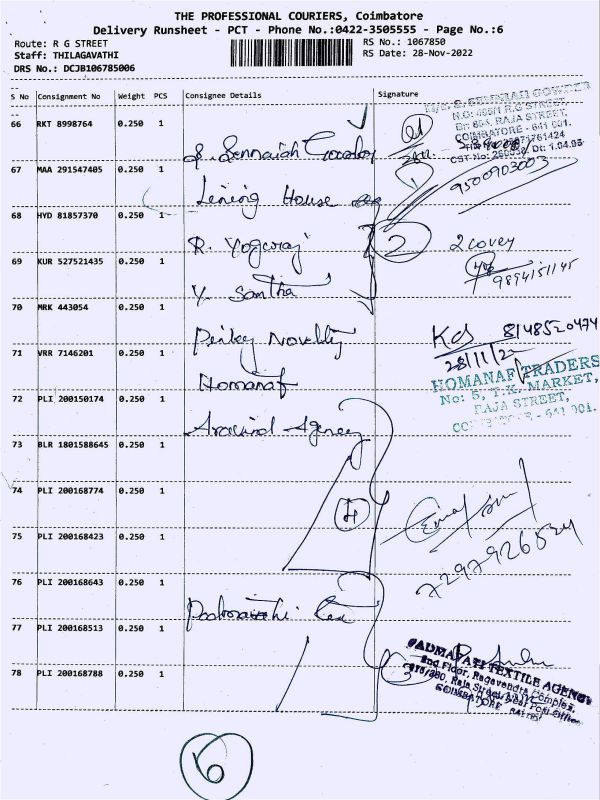 THE PROFESSIONAL COURIERS, Coimbatore
Delivery Runsheet - PCT - Phone No.:0422-3505555 - Page No.:6
Route: R G STREET
Staff: THILAGAVATHI
DRS No.: DCJB106785006
RS No.: 1067850
RS Date: 28-Nov-2022
S No Consignment No Weight PCS Consignee Details Signature
66 RKT 8998764 0.250 1
RAJA STREET,
COIMBATORE - 641 001.
67 MAA 291547405 0.250 1 Lining House
9500903003
68 HYD 81857370 0.250 1 R. Yogaraj 2 2 covey
69 KUR 527521435 0.250 1 Y. Santha
9894151145
70 MRK 443054 0.250 1 Novelty
8148520474
28/11/22
71 VRR 7146201 0.250 1 Homanaf
HOMANAF TRADERS
No: 5, T.K. MARKET,
RAJA STREET,
72 PLI 200150174 0.250 1 Aravind Agency
73 BLR 1801588645 0.250 1
74 PLI 200168774 0.250 1 4
75 PLI 200168423 0.250 1
7297926524
76 PLI 200168643 0.250 1
77 PLI 200168513 0.250 1
PADMAVATI TEXTILE AGENCY
2nd Floor, Ragavendra Complex,
78 PLI 200168788 0.250 1 3
COIMBATORE
6